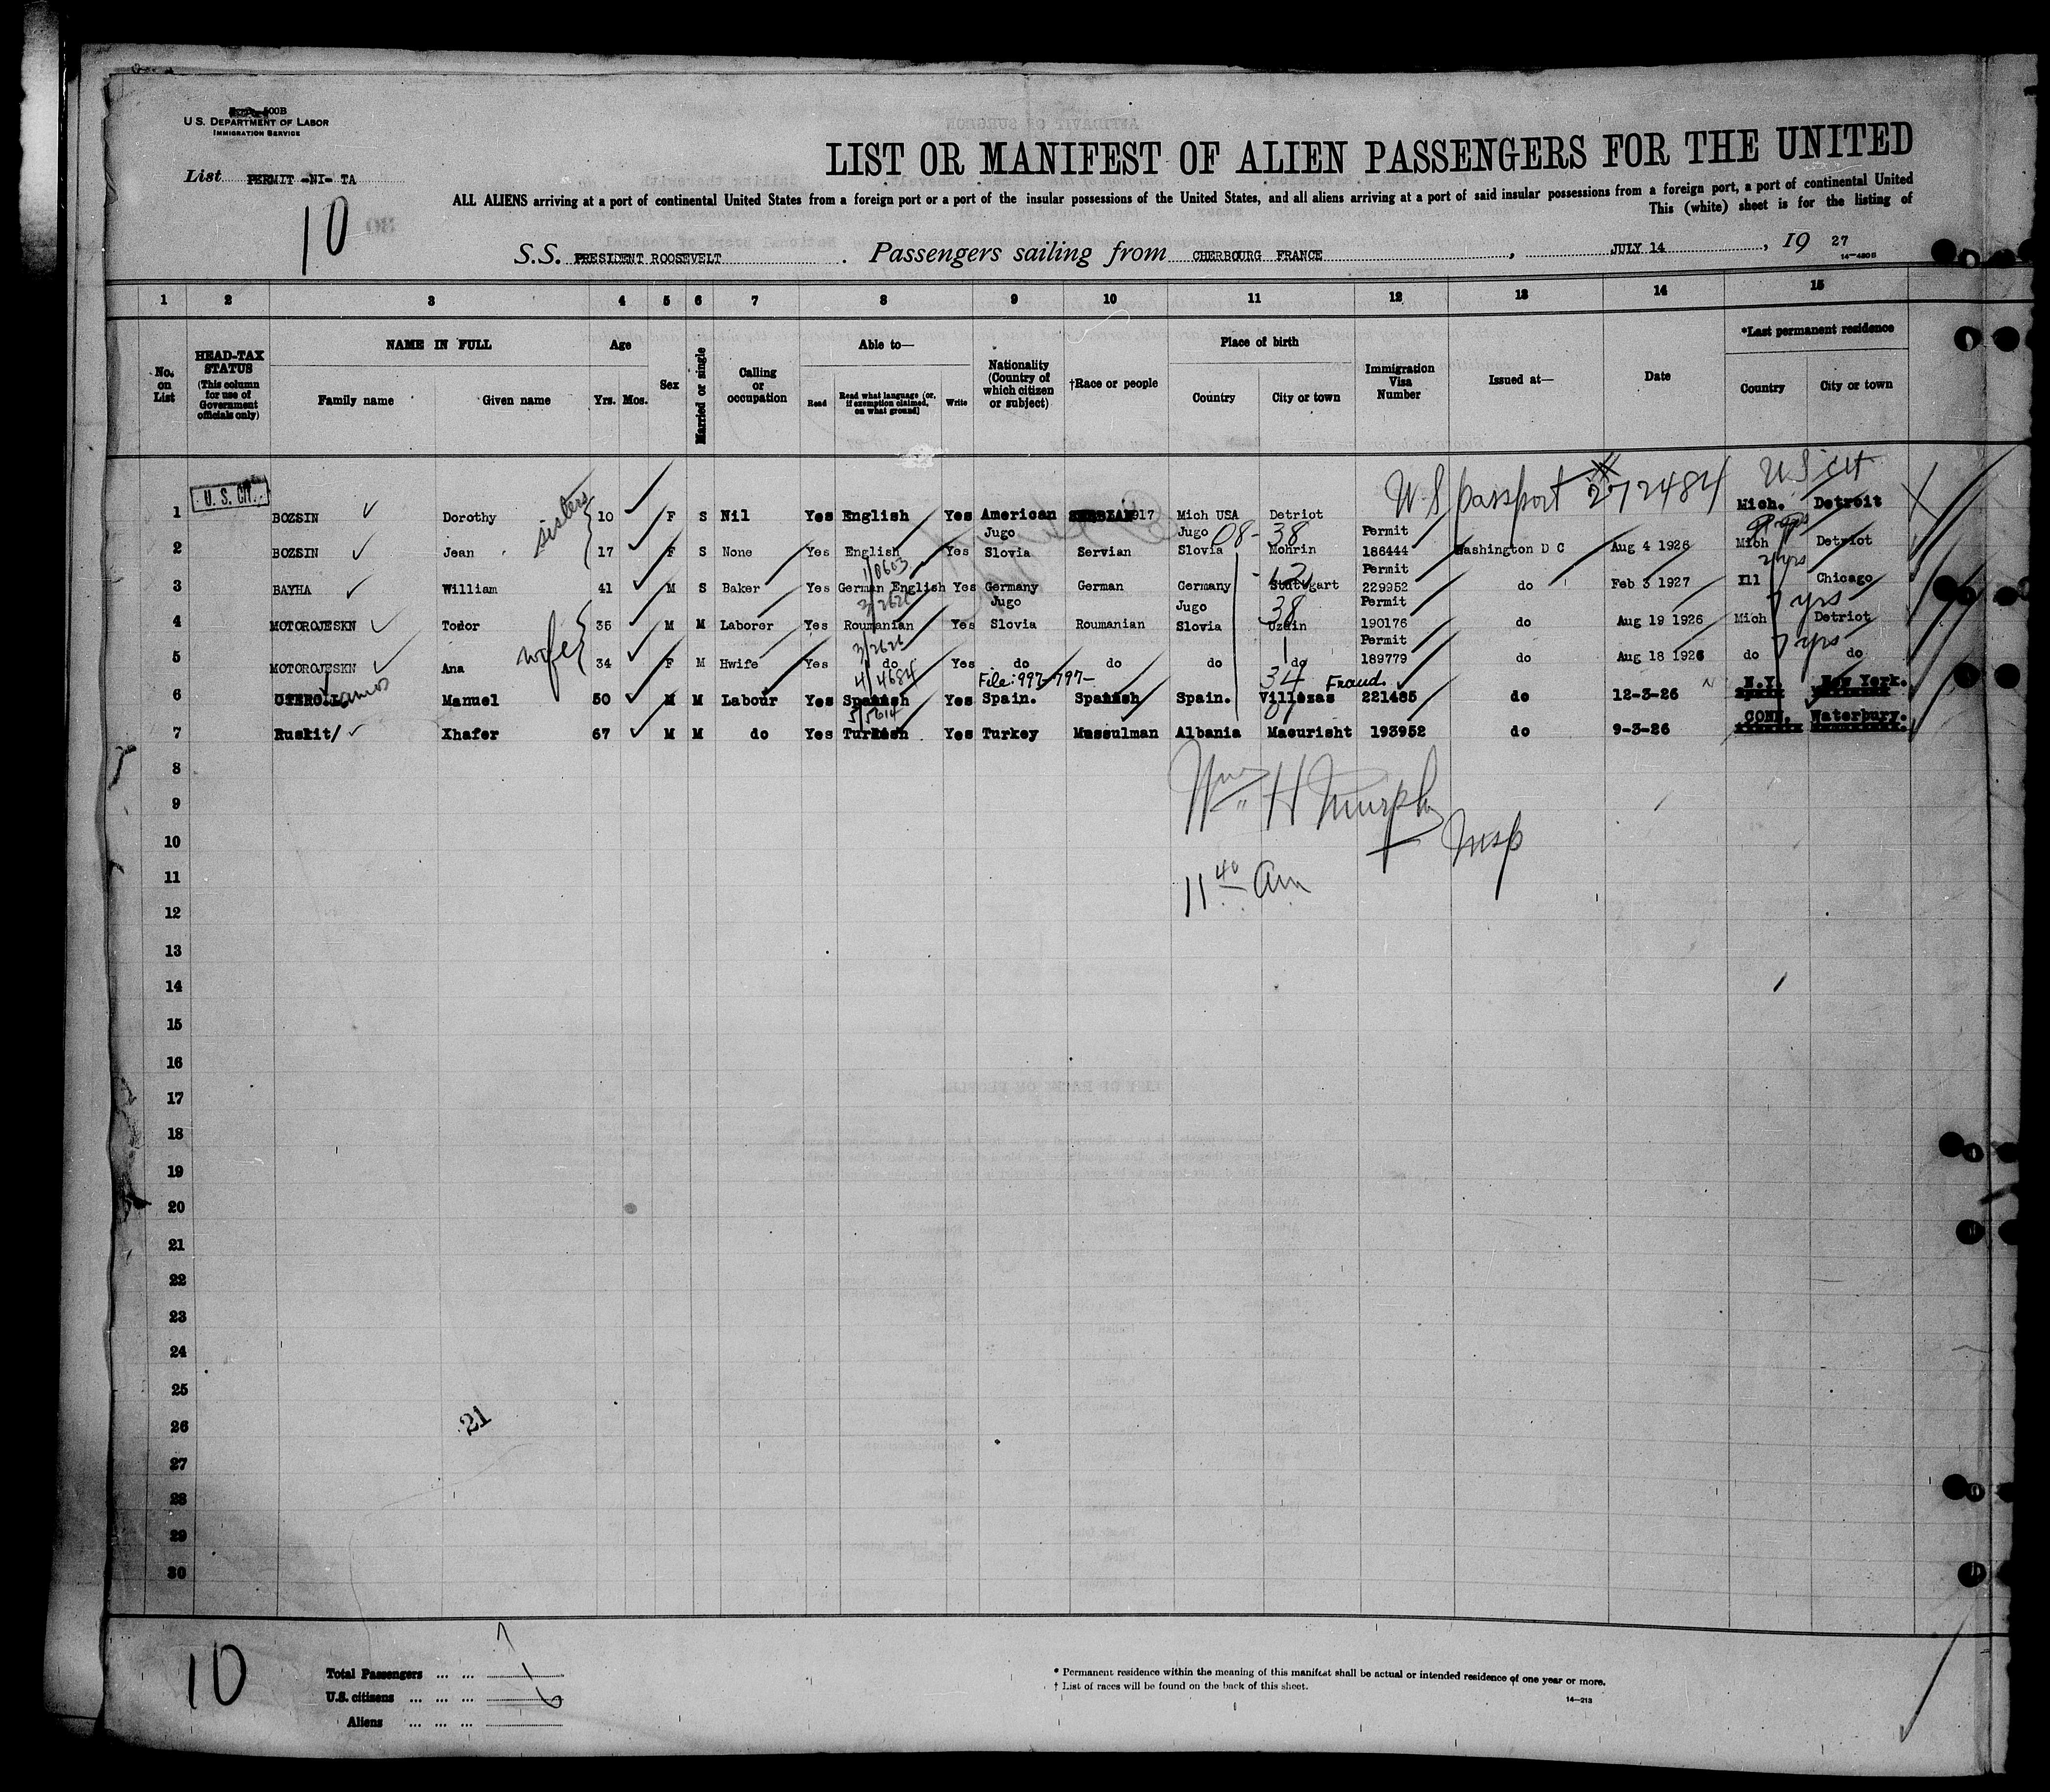 500B
U. S. DEPARTMENT OF LABOR
IMMIGRATION SERVICE
List PERMIT -NI- TA
10
LIST OR MANIFEST OF ALIEN PASSENGERS FOR THE UNITED
ALL ALIENS arriving at a port of continental United States from a foreign port or a port of the insular possessions of the United States, and all aliens arriving at a port of said insular possessions from a foreign port, a port of continental United
This (white) sheet is for the listing of
S.S. PRESIDENT ROOSEVELT. Passengers sailing from CHERBOURG FRANCE, JULY 14, 19 27
1 2 3 4 5 6 7 8 9 10 11 12 13 14 15
No. on List
HEAD-TAX STATUS (This column for use of Government officials only)
NAME IN FULL
Family name Given name
Age
Yrs. Mos.
Sex
Married or single
Calling or occupation
Able to—
Read Read what language (or, if exemption claimed, on what ground) Write
Nationality (Country of which citizen or subject)
†Race or people
Place of birth
Country City or town
Immigration Visa Number
Issued at—
Date
*Last permanent residence
Country City or town
U.S. passport # 272484 U S Cit
1 U. S. CIT. BOZSIN Dorothy sisters 10 F S Nil Yes English Yes American 917 Mich USA Detriot Mich. Detroit
2 BOZSIN Jean 17 F S None Yes English Yes Jugo Slovia Servian Jugo Slovia 08- 38 Mohrin Permit 186444 Washington D C Aug 4 1926 Mich Detriot
1/0603 2 yrs
3 BAYHA William 41 M S Baker Yes German English Yes Germany German Germany Stuttgart Permit 229952 do Feb 3 1927 Ill Chicago
3/2626 38 7 yrs
4 MOTOROJESKN Todor 35 M M Laborer Yes Roumanian Yes Jugo Slovia Roumanian Jugo Slovia Uzdin Permit 190176 do Aug 19 1926 Mich Detriot
wife 3/2626 7 yrs
5 MOTOROJESKN Ana 34 F M Hwife Yes do Yes do do do do Permit 189779 do Aug 18 1926 do do
4/4684 File: 997-797- 34 Fraud.
6 Manuel 50 M M Labour Yes Spanish Yes Spain. Spanish Spain. Villezas 221485 do 12-3-26 N.Y. New York.
5/5614
7 Ruskit/ Xhafer 67 M M do Yes Turkish Yes Turkey Mussulman Albania Macurisht 193952 do 9-3-26 CONN. Waterbury.
8
9
10
11
12
13
14
15
16
17
18
19
20
21
22
23
24
25
26
27
28
29
30
Wm H Murphy Insp
11 40 Am
21
10
7
Total Passengers ... ... 1
U.S. citizens ... ... ... 6
Aliens ... ... ...
* Permanent residence within the meaning of this manifest shall be actual or intended residence of one year or more.
† List of races will be found on the back of this sheet.
14—213